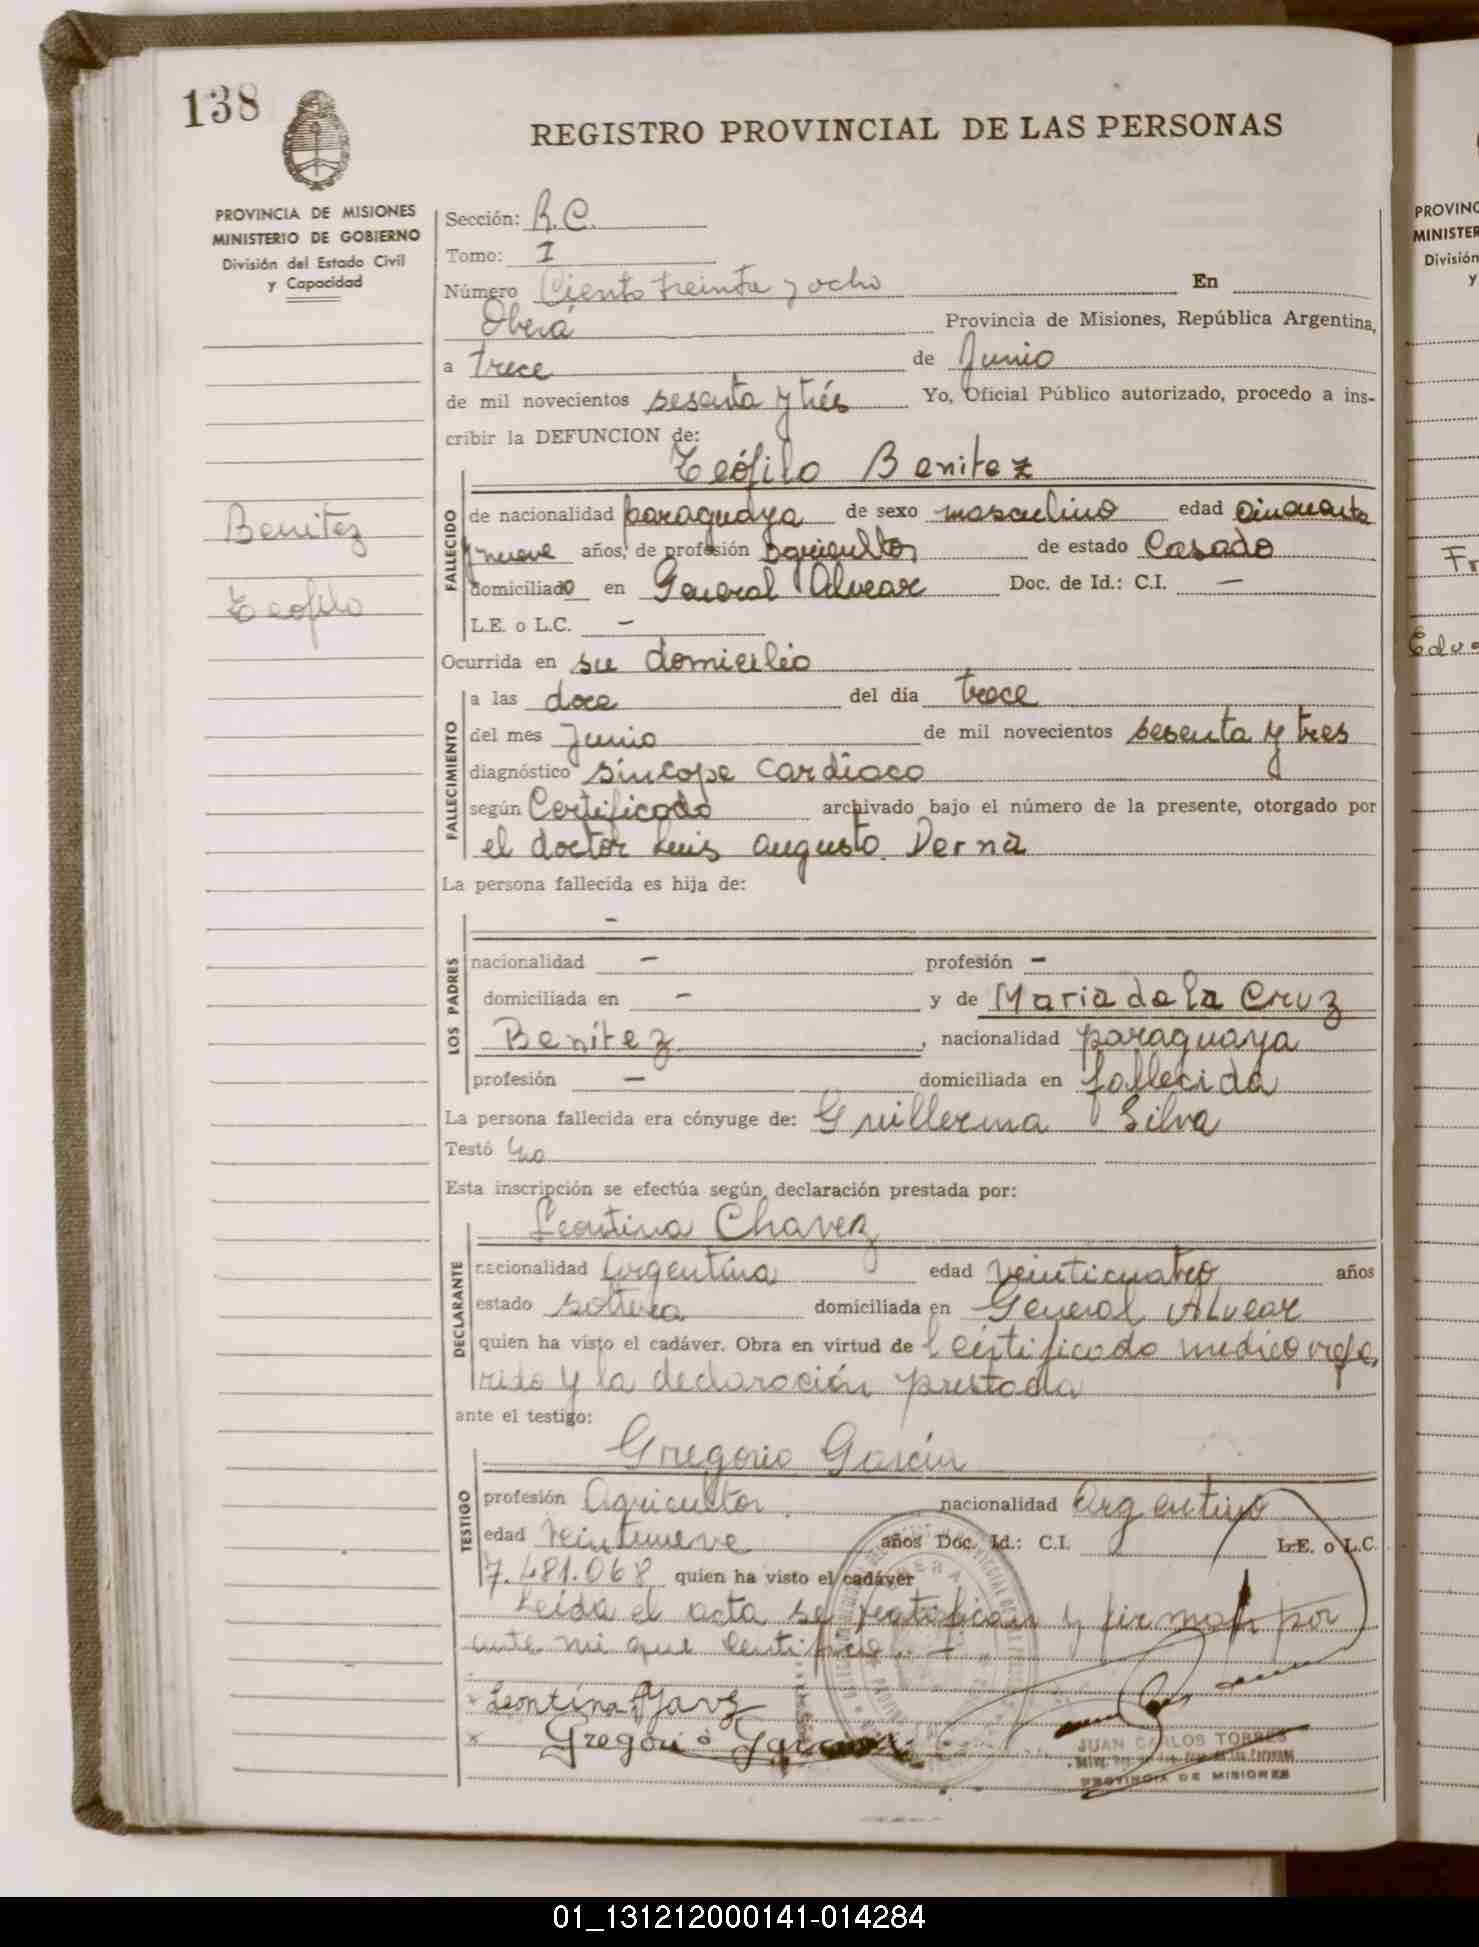 138
REGISTRO PROVINCIAL DE LAS PERSONAS
PROVINCIA DE MISIONES
MINISTERIO DE GOBIERNO
División del Estado Civil
y Capacidad
Sección: R.C.
Tomo: I
Número Ciento treinta y ocho En
Oberá Provincia de Misiones, República Argentina,
a trece de Junio
de mil novecientos sesenta y trés Yo, Oficial Público autorizado, procedo a ins-
cribir la DEFUNCION de:
Teófilo Benitez
Benitez
Teofilo
FALLECIDO
de nacionalidad paraguaya de sexo masculino edad cincuenta
y nueve años, de profesión agricultor de estado Casado
domiciliado en General Alvear Doc. de Id.: C.I. —
L.E. o L.C. —
Ocurrida en su domicilio
FALLECIMIENTO
a las doce del día trece
del mes Junio de mil novecientos sesenta y tres
diagnóstico síncope cardiaco
según Certificado archivado bajo el número de la presente, otorgado por
el doctor Luis Augusto Derna
La persona fallecida es hija de:
LOS PADRES
—
nacionalidad — profesión —
domiciliada en — y de Maria de la Cruz
Benítez, nacionalidad paraguaya
profesión — domiciliada en fallecida
La persona fallecida era cónyuge de: Guillerma Silva
Testó No
Esta inscripción se efectúa según declaración prestada por:
Leontina Chavez
DECLARANTE
nacionalidad Argentina edad veinticuatro años
estado soltera domiciliada en General Alvear
quien ha visto el cadáver. Obra en virtud del certificado medico refe,
rido y la declaración prestada
ante el testigo:
Gregorio García
TESTIGO
profesión Agricultor nacionalidad Argentino
edad veintinueve años Doc. Id.: C.I. L.E. o L.C.
7.481.068 quien ha visto el cadáver
Leída el acta se ratifican y firman por
ante mi que certifico. —
x Leontina
x Gregorio
JUAN CARLOS TORRES
PROVINCIA DE MISIONES
PROVINC
MINISTER
División
y
01_131212000141-014284